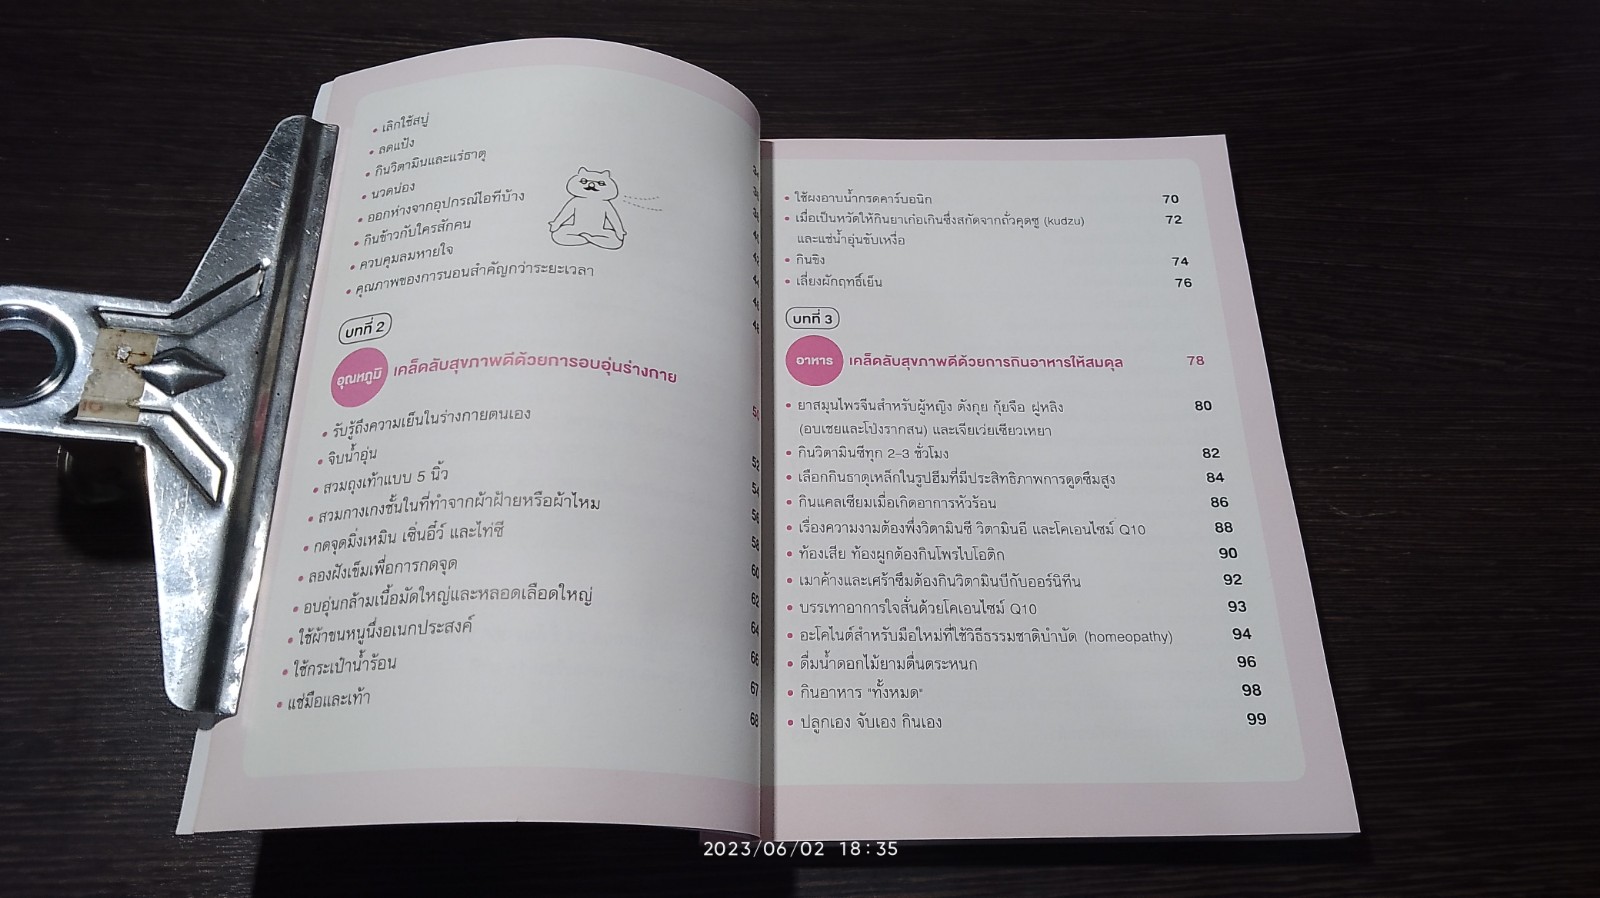 • เลิกใช้สบู่
• ลดแป้ง
• กินวิตามินและแร่ธาตุ
• นวดน่อง
• ออกห่างจากอุปกรณ์ไอทีบ้าง
• กินข้าวกับใครสักคน
• ควบคุมลมหายใจ
• คุณภาพของการนอนสำคัญกว่าระยะเวลา
บทที่ 2
อุณหภูมิ เคล็ดลับสุขภาพดีด้วยการอบอุ่นร่างกาย
• รับรู้ถึงความเย็นในร่างกายตนเอง
• จิบน้ำอุ่น 52
• สวมถุงเท้าแบบ 5 นิ้ว 54
• สวมกางเกงชั้นในที่ทำจากผ้าฝ้ายหรือผ้าไหม 56
• กดจุดมิ่งเหมิน เซิ่นอี๋ว์ และไท่ซี 58
• ลองฝังเข็มเพื่อการกดจุด 60
• อบอุ่นกล้ามเนื้อมัดใหญ่และหลอดเลือดใหญ่ 62
• ใช้ผ้าขนหนูนึ่งอเนกประสงค์ 64
• ใช้กระเป๋าน้ำร้อน 66
• แช่มือและเท้า 67
68
• ใช้ผงอาบน้ำกรดคาร์บอนิก 70
• เมื่อเป็นหวัดให้กินยาเก๋อเกินซึ่งสกัดจากถั่วคุดซู (kudzu) 72
และแช่น้ำอุ่นขับเหงื่อ
• กินขิง 74
• เลี่ยงผักฤทธิ์เย็น 76
บทที่ 3
อาหาร เคล็ดลับสุขภาพดีด้วยการกินอาหารให้สมดุล 78
• ยาสมุนไพรจีนสำหรับผู้หญิง ตังกุย กุ้ยจือ ฝูหลิง 80
(อบเชยและโป่งรากสน) และเจียเว่ยเซียวเหยา
• กินวิตามินซีทุก 2-3 ชั่วโมง 82
• เลือกกินธาตุเหล็กในรูปฮีมที่มีประสิทธิภาพการดูดซึมสูง 84
• กินแคลเซียมเมื่อเกิดอาการหัวร้อน 86
• เรื่องความงามต้องพึ่งวิตามินซี วิตามินอี และโคเอนไซม์ Q10 88
• ท้องเสีย ท้องผูกต้องกินโพรไบโอติก 90
• เมาค้างและเศร้าซึมต้องกินวิตามินบีกับออร์นิทีน 92
• บรรเทาอาการใจสั่นด้วยโคเอนไซม์ Q10 93
• อะโคไนต์สำหรับมือใหม่ที่ใช้วิธีธรรมชาติบำบัด (homeopathy) 94
• ดื่มน้ำดอกไม้ยามตื่นตระหนก 96
• กินอาหาร "ทั้งหมด" 98
• ปลูกเอง จับเอง กินเอง 99
2023/06/02 18:35